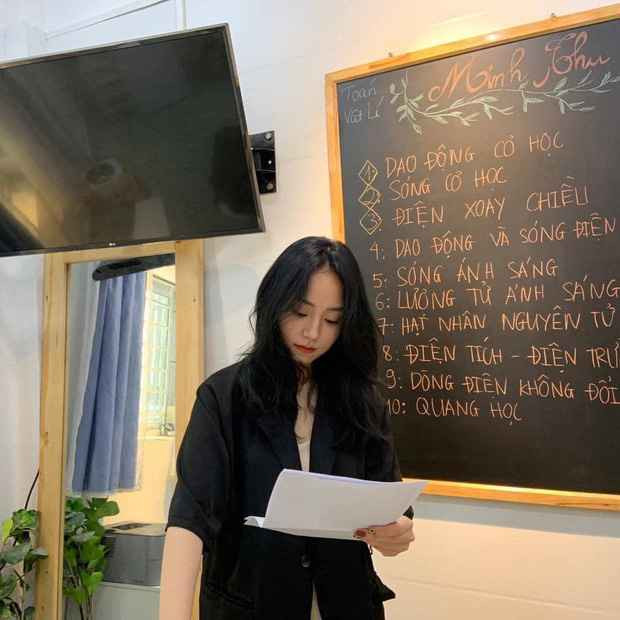 Toán Minh Thu
Vật Lí
1. DAO ĐỘNG CƠ HỌC
2. SÓNG CƠ HỌC
3. ĐIỆN XOAY CHIỀU
4: DAO ĐỘNG VÀ SÓNG ĐIỆN
5: SÓNG ÁNH SÁNG
6: LƯỢNG TỬ ÁNH SÁNG
7: HẠT NHÂN NGUYÊN TỬ
8: ĐIỆN TÍCH - ĐIỆN TRƯ
9: DÒNG ĐIỆN KHÔNG ĐỔI
10: QUANG HỌC
LG